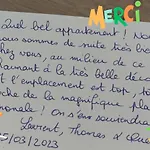 MERCi
Quel bel appartement ! No
ous sommes de suite très bi
chez vous, au milieu de ce
harmant à la très belle déco
t l'emplacement est top, to
che de la magnifique pla
onale ! On s'en souviendra
Laurent, Thomas &
/03/2023